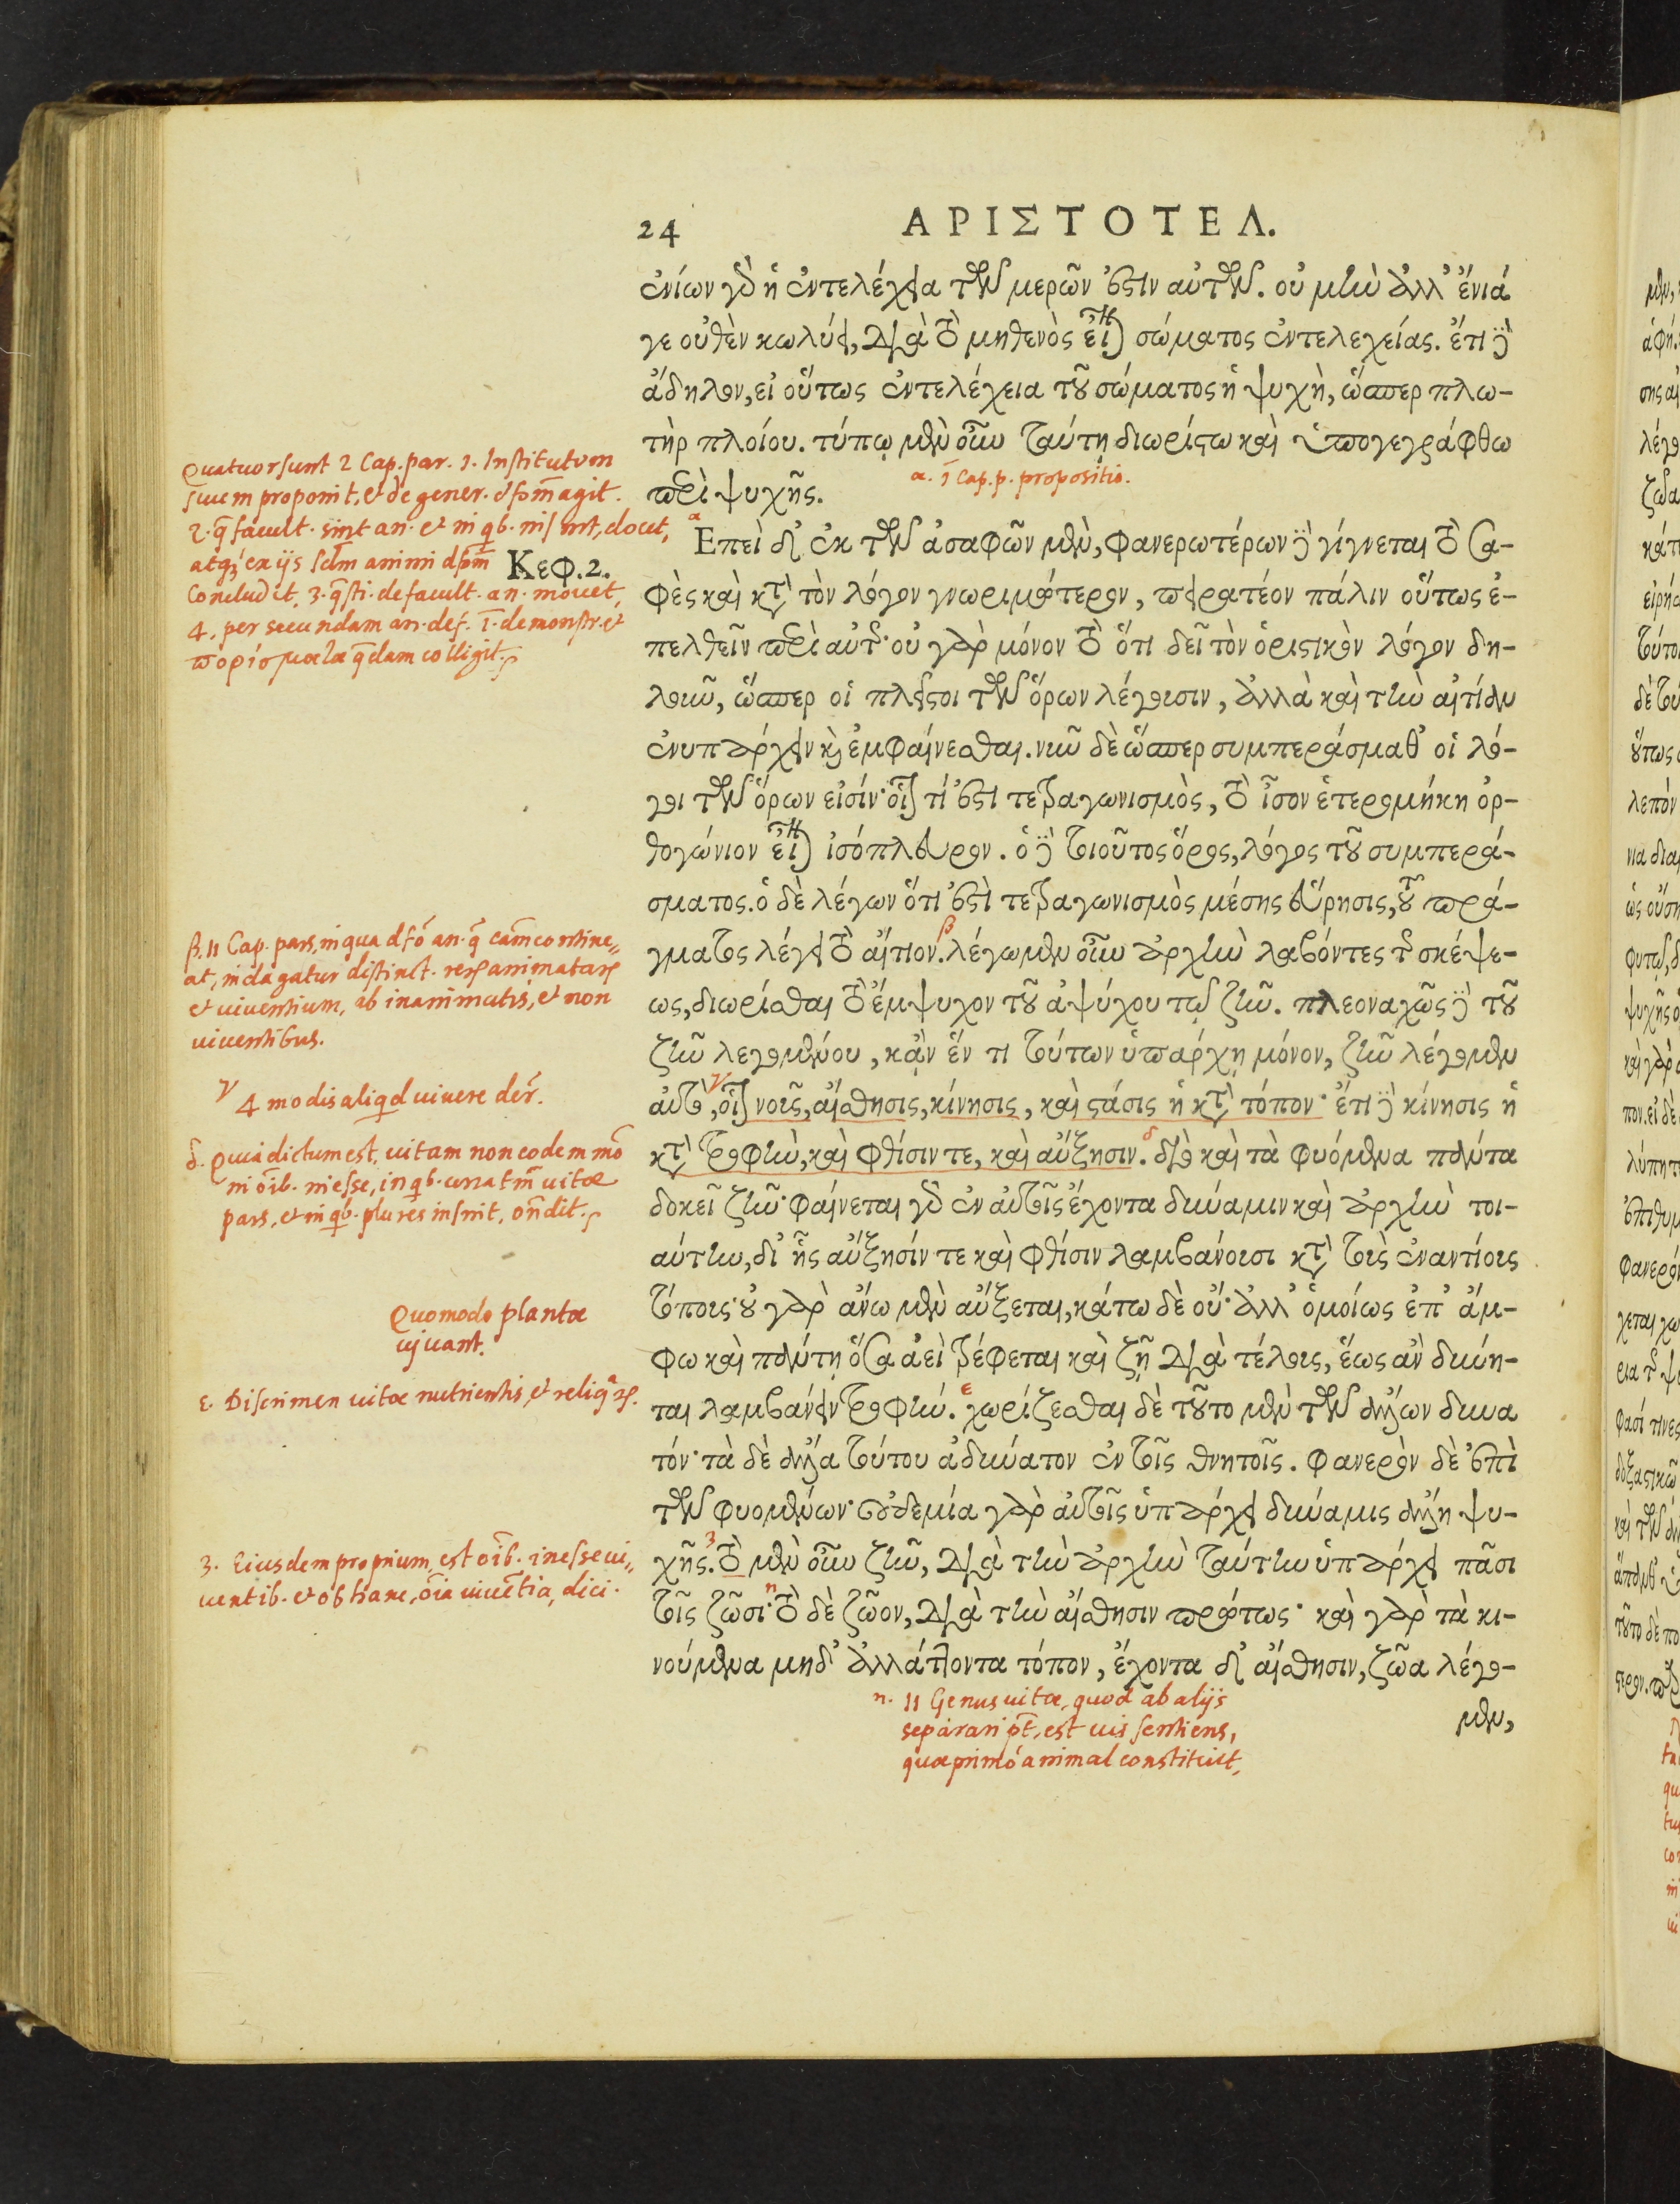 24 ΑΡΙΣΤΟΤΕΛ.
ἐνίων γδ ἡ ἐντελέχεια τῶν μερῶν ἐστιν αὐτῶν. οὐ μὴν ἀλλ' ἔνιά
γε οὐθὲν κωλύει, διὰ τὸ μηθενὸς εἶναι σώματος ἐντελεχείας. ἔτι δὲ
ἄδηλον, εἰ οὕτως ἐντελέχεια τοῦ σώματος ἡ ψυχὴ, ὥσπερ πλω-
τὴρ πλοίου. τύπῳ μὲν οὖν ταύτῃ διωρίσθω καὶ ὑπογεγράφθω
περὶ ψυχῆς.
α. 1 Cap. p. propositio.
Quatuor sunt 2 Cap. par. 1. Institutum
suum proponit, et de gener. dfom agit.
2. q facult. sint an. et in qb. insint, docet,
atq; ex ijs sctm animi dfom
Concludit, 3. qsti. de facult. an. mouet,
4. per secundam an. def. 1. demonstr. et
πορίσματα qdam colligit.
Κεφ. 2.
α Επεὶ δ' ἐκ τῶν ἀσαφῶν μὲν, φανερωτέρων δὲ γίγνεται τὸ σα-
φὲς καὶ κτ τὸν λόγον γνωριμώτερον, πειρατέον πάλιν οὕτως ἐ-
πελθεῖν περὶ αὐτῆς· οὐ γὰρ μόνον τὸ ὅτι δεῖ τὸν ὁριστικὸν λόγον δη-
λοῦν, ὥσπερ οἱ πλεῖστοι τῶν ὅρων λέγουσιν, ἀλλὰ καὶ τὴν αἰτίαν
ἐνυπάρχειν κὶ ἐμφαίνεσθαι. νῦν δὲ ὥσπερ συμπεράσμαθ' οἱ λό-
γοι τῶν ὅρων εἰσίν· οἷον τί ἐστι τετραγωνισμὸς, τὸ ἶσον ἑτερομήκη ὀρ-
θογώνιον εἶναι ἰσόπλευρον. ὁ δὲ τοιοῦτος ὅρος, λόγος τοῦ συμπερά-
σματος. ὁ δὲ λέγων ὅτι ἐστὶ τετραγωνισμὸς μέσης εὕρησις, τοῦ πρά-
γματος λέγει τὸ αἴτιον. β λέγωμεν οὖν ἀρχὴν λαβόντες τῆς σκέψε-
ως, διωρίσθαι τὸ ἔμψυχον τοῦ ἀψύχου τῷ ζῆν. πλεοναχῶς δὲ τοῦ
ζῆν λεγομένου, κἂν ἕν τι τούτων ὑπάρχῃ μόνον, ζῆν λέγομεν
αὐτὸ, γ οἷον νοῦς, αἴσθησις, κίνησις, καὶ στάσις ἡ κτ τόπον· ἔτι δὲ κίνησις ἡ
κτ τροφὴν, καὶ φθίσιν τε, καὶ αὔξησιν. δ διὸ καὶ τὰ φυόμενα πάντα
δοκεῖ ζῆν· φαίνεται γδ ἐν αὐτοῖς ἔχοντα δύναμιν καὶ ἀρχὴν τοι-
αύτην, δι' ἧς αὔξησίν τε καὶ φθίσιν λαμβάνουσι κτ τοὺς ἐναντίους
τόπους· οὐ γὰρ ἄνω μὲν αὔξεται, κάτω δὲ οὔ· ἀλλ' ὁμοίως ἐπ' ἄμ-
φω καὶ πάντῃ ὅσα ἀεὶ τρέφεται καὶ ζῇ διὰ τέλους, ἕως ἂν δύνη-
ται λαμβάνειν τροφήν. ε χωρίζεσθαι δὲ τοῦτο μὲν τῶν ἄλλων δυνα
τόν· τὰ δὲ ἄλλα τούτου ἀδύνατον ἐν τοῖς θνητοῖς. φανερὸν δὲ ἐπὶ
τῶν φυομένων· οὐδεμία γὰρ αὐτοῖς ὑπάρχει δύναμις ἄλλη ψυ-
χῆς. 3 τὸ μὲν οὖν ζῆν, διὰ τὴν ἀρχὴν ταύτην ὑπάρχει πᾶσι
τοῖς ζῶσι· η τὸ δὲ ζῶον, διὰ τὴν αἴσθησιν πρώτως· καὶ γὰρ τὰ κι-
νούμενα μηδ' ἀλλάττοντα τόπον, ἔχοντα δ' αἴσθησιν, ζῶα λέγο-
μεν,
β. 11 Cap. pars, in qua dfo an. q cam contine-
at, indagatur distinct. rerum animatarum
et uiuentium, ab inanimatis, et non
uiuentibus.
γ 4 modis aliqd uiuere der.
δ. Quia dictum est, uitam non eodem mo
in oib. inesse, in qb. una tm uitæ
pars, et in qb. plures insint, ondit.
Quomodo plantæ
uiuant.
ε. Discrimen uitæ nutrientis, et reliqrum.
3. Eiusdem proprium est oib. inesse ui-
uentib. et ob hanc, oia uiuentia, dici.
η. 11 Genus uitæ, quod ab alijs
separari pt, est uis sentiens,
quæ primo animal constituit,